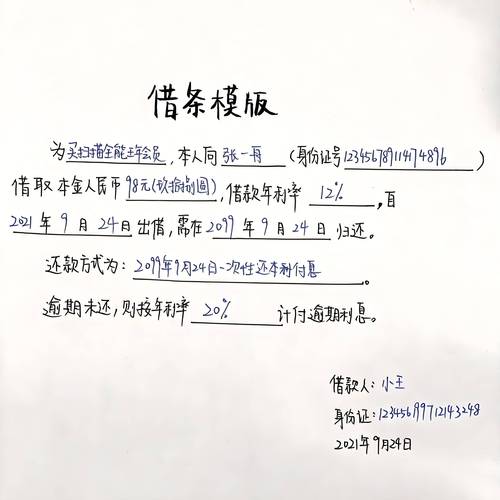 借条模版
为买扫描全能王年会员,本人向张一丹(身份证号12345678911474896)
借取本金人民币98元(玖拾捌圆),借款年利率12%,自
2021年9月24日出借,需在2099年9月24日归还。
还款方式为:2099年9月24日一次性还本利付息。
逾期未还,则按年利率20%计付逾期利息。
借款人:小王
身份证:12345699712143248
2021年9月24日